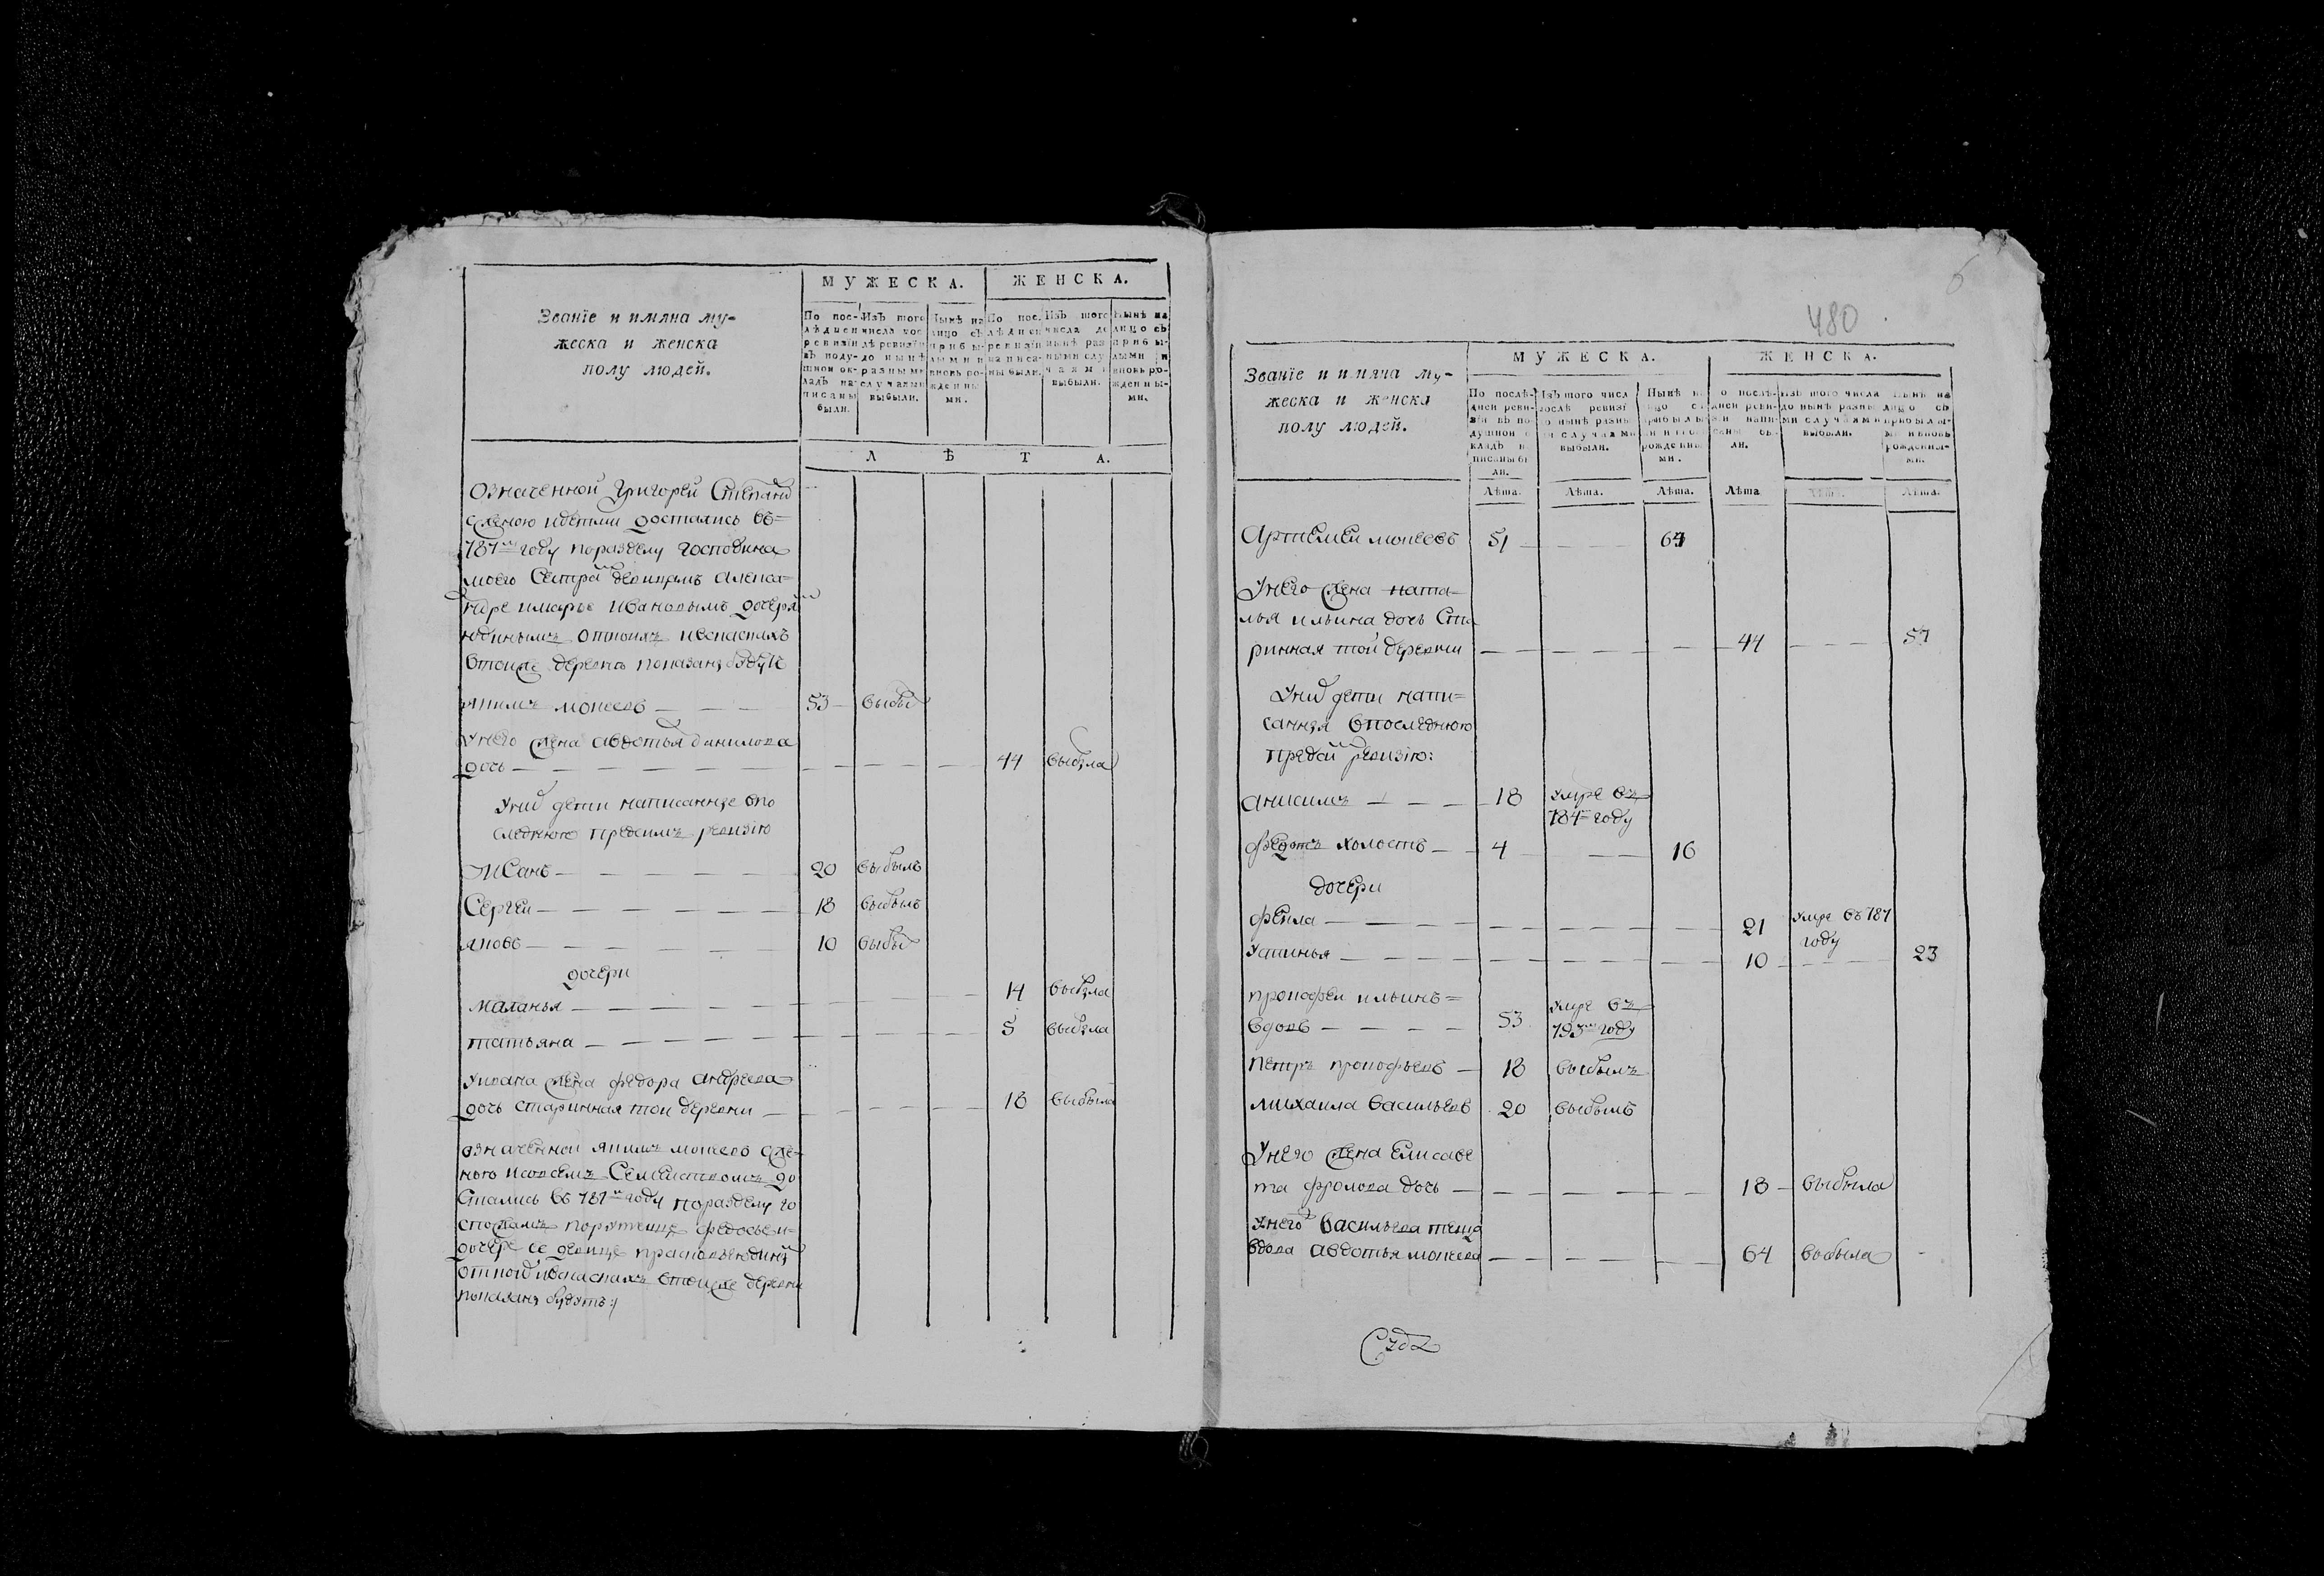 Званїе и имяна му-
жеска и женска
полу людей.
МУЖЕСКА.
ЖЕНСКА.
По пос-
лѣдней
ревизїи
въ поду-
шной ок-
ладъ на-
писаны
были.
Изъ того
числа пос
лѣ ревизїи
до нынѣ
разными
случаями
выбыли.
Нынѣ на
лицо съ
прибы-
лыми и
вновь ро-
жденны
ми.
По пос.
лѣдней
ревизїи
написа-
ны были.
Изъ того
числа до
нынѣ раз
ными слу
чаями
выбыли.
Нынѣ на
лицо съ
прибы-
лыми и
вновь ро-
жденны-
ми.
Л Ѣ Т А.
Означенной Григорей Степанов
з женою и детми достались въ=
787м году по разделу господина
моего сестрам девицам Алекса=
ндре и Марье Ивановым дочерям
отписаны и в сказках
в той же деревне показаны будут
Яким Мокеевъ — — — 53 — выбыл
У него жена Авдотья Данилова
дочь — — — — — — 44 выбыла
У них дети написанные в по
следнюю пред сим ревизию
Иванъ — — — — — 20 выбылъ
Сергей — — — — — 18 выбылъ
Яковъ — — — — — 10 выбыл
дочери
Маланья — — — — — 14 выбыла
Татьяна — — — — — 5 выбыла
У Ивана жена Федора Андреева
дочь старинная той деревни — — — 18 выбыла
означенной Яким Мокеевъ з же
ною и со всем семейством до
стались въ 787м году по разделу го
спожам порутчице Федосье и=
дочере ее девице Прасковье
от них в сказках в той же деревне
показаны будутъ:/
480
6
Званїе и имяна му-
жеска и женска
полу людей.
МУЖЕСКА.
ЖЕНСКА.
По послѣ-
дней реви-
зїи въ по-
душной о
кладъ н
писаны бы
ли.
Изъ того числ
послѣ ревизї
о нынѣ разны
и случаями
выбыли.
Нынѣ н
ицо с
прибылы
и и вновь
рожденны
ми.
о послѣ-
дней реви-
зїи напи-
саны бы-
ли.
Изъ того числа
до нынѣ разны
ми случаями
выбыли.
Нынѣ на
лицо съ
прибылы-
ми и вновь
рожденны-
ми.
Лѣта. Лѣта. Лѣта. Лѣта Лѣта. Лѣта.
Артемей Мокеевъ 51 — — — 64
У него жена Ната-
лья Ильина дочь ста
ринная той деревни — — — — — 44 — — — 57
У них дети напи=
санныя в последнюю
пред сим ревизию:
Анисимъ — — — 18 умре въ
784м году
Федотъ холостъ — — 4 — — — 16
дочери
Фекла — — — — — — — 21 умре въ 787
году
Устинья — — — — — — — 10 — — — 23
Прокофей Ильинъ=
вдовъ — — — — 53 умре въ
793м году
Петръ Прокофьевъ — 18 выбылъ
Михаила Васильевъ 20 выбылъ
У него жена Елисаве
та Фролова дочь — — — — — — 18 — выбыла
У него Васильева теща
вдова Авдотья Мокеева — — — — — 64 выбыла